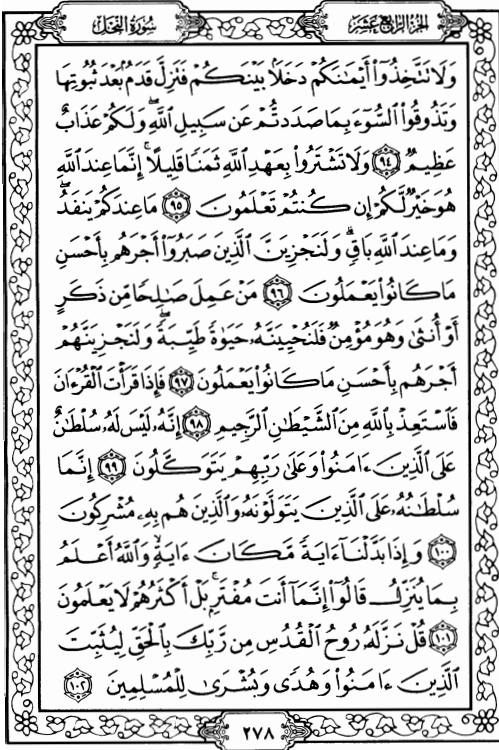 سُورَةُ النَّحْلِ
الجُزءُ الرَّابِعَ عَشَرَ
وَلَا تَتَّخِذُوٓا۟ أَيْمَٰنَكُمْ دَخَلًۢا بَيْنَكُمْ فَتَزِلَّ قَدَمٌۢ بَعْدَ ثُبُوتِهَا
وَتَذُوقُوا۟ ٱلسُّوٓءَ بِمَا صَدَدتُّمْ عَن سَبِيلِ ٱللَّهِ ۖ وَلَكُمْ عَذَابٌ
عَظِيمٌ ﴿٩٤﴾ وَلَا تَشْتَرُوا۟ بِعَهْدِ ٱللَّهِ ثَمَنًا قَلِيلًا ۚ إِنَّمَا عِندَ ٱللَّهِ
هُوَ خَيْرٌ لَّكُمْ إِن كُنتُمْ تَعْلَمُونَ ﴿٩٥﴾ مَا عِندَكُمْ يَنفَدُ ۖ
وَمَا عِندَ ٱللَّهِ بَاقٍ ۗ وَلَنَجْزِيَنَّ ٱلَّذِينَ صَبَرُوٓا۟ أَجْرَهُم بِأَحْسَنِ
مَا كَانُوا۟ يَعْمَلُونَ ﴿٩٦﴾ مَنْ عَمِلَ صَٰلِحًا مِّن ذَكَرٍ
أَوْ أُنثَىٰ وَهُوَ مُؤْمِنٌ فَلَنُحْيِيَنَّهُۥ حَيَوٰةً طَيِّبَةً ۖ وَلَنَجْزِيَنَّهُمْ
أَجْرَهُم بِأَحْسَنِ مَا كَانُوا۟ يَعْمَلُونَ ﴿٩٧﴾ فَإِذَا قَرَأْتَ ٱلْقُرْءَانَ
فَٱسْتَعِذْ بِٱللَّهِ مِنَ ٱلشَّيْطَٰنِ ٱلرَّجِيمِ ﴿٩٨﴾ إِنَّهُۥ لَيْسَ لَهُۥ سُلْطَٰنٌ
عَلَى ٱلَّذِينَ ءَامَنُوا۟ وَعَلَىٰ رَبِّهِمْ يَتَوَكَّلُونَ ﴿٩٩﴾ إِنَّمَا
سُلْطَٰنُهُۥ عَلَى ٱلَّذِينَ يَتَوَلَّوْنَهُۥ وَٱلَّذِينَ هُم بِهِۦ مُشْرِكُونَ
﴿١٠٠﴾ وَإِذَا بَدَّلْنَآ ءَايَةً مَّكَانَ ءَايَةٍ ۙ وَٱللَّهُ أَعْلَمُ
بِمَا يُنَزِّلُ قَالُوٓا۟ إِنَّمَآ أَنتَ مُفْتَرٍۭ ۚ بَلْ أَكْثَرُهُمْ لَا يَعْلَمُونَ
﴿١٠١﴾ قُلْ نَزَّلَهُۥ رُوحُ ٱلْقُدُسِ مِن رَّبِّكَ بِٱلْحَقِّ لِيُثَبِّتَ
ٱلَّذِينَ ءَامَنُوا۟ وَهُدًى وَبُشْرَىٰ لِلْمُسْلِمِينَ ﴿١٠٢﴾
٢٧٨